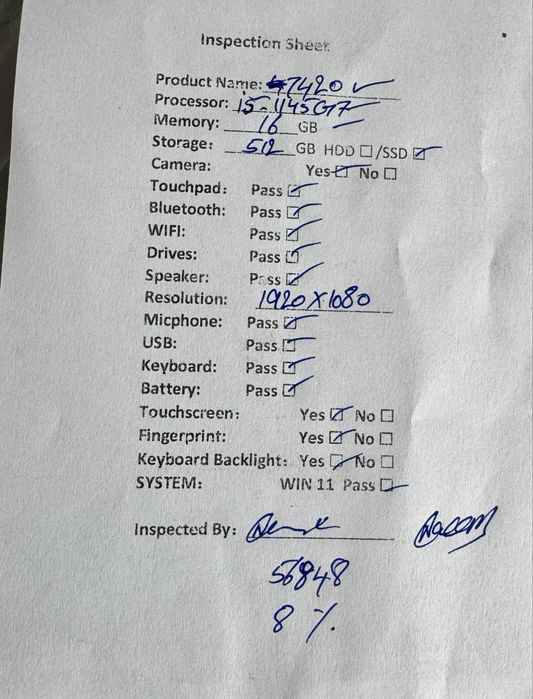 Inspection Sheet
Product Name: 7420 ✓
Processor: i5-1145G7
Memory: 16 GB
Storage: 512 GB HDD ☐/SSD ☑
Camera: Yes ☑ No ☐
Touchpad: Pass ☑
Bluetooth: Pass ☑
WIFI: Pass ☑
Drives: Pass ☑
Speaker: Pass ☑
Resolution: 1920 X 1080
Micphone: Pass ☑
USB: Pass ☑
Keyboard: Pass ☑
Battery: Pass ☑
Touchscreen: Yes ☑ No ☐
Fingerprint: Yes ☑ No ☐
Keyboard Backlight: Yes ☑ No ☐
SYSTEM: WIN 11 Pass ☑
Inspected By:
56848
8 %.